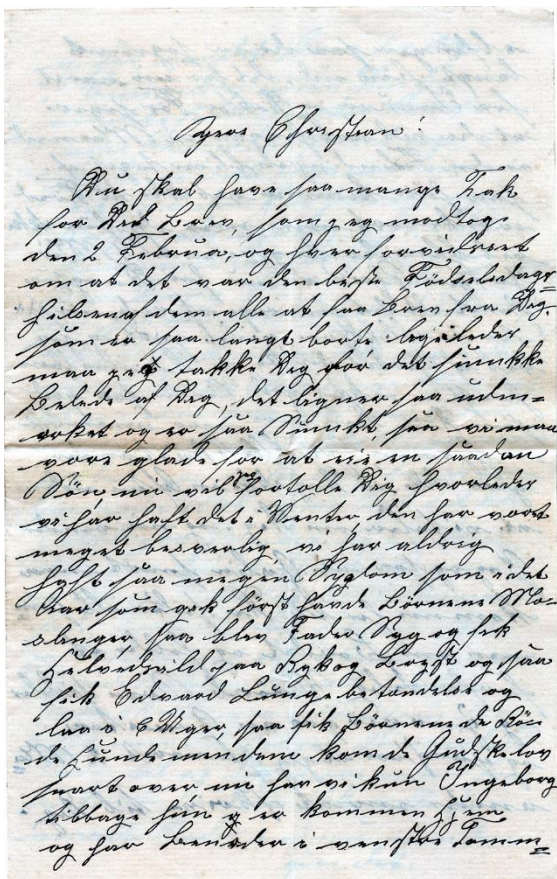 Kjere Christian!
Du skal have saa mange Tak
for Ded Brev, som jeg modtog
den 2 Februa, og hver forvidreet
om at det var den beste Födselsdags=
hilsen af dem alle at faa Brev fra Dig
som er saa langt borte ligeleder
maa jeg takke Dig for det smukke
Belede af Dig, det ligner saa udm=
erket og er saa Smukt, saa vi maa
vere glade for at eie en saadan
Sön, nu vil fortelle Dig hvorleder
vi har haft det i Venter, den har vert
meget besverlig, vi har aldrig
haft saa megen Sygdom som i det
Aar som gik först havde Börnene Me-
slenger, saa blev Fader Syg og fik
Helvedsild paa Ryk og Bryst og saa
fik Edvard Lungebetendelse og
laa i 6 Uger, saa fik Börnene de Rön-
de Hunde men dem kom de Gudskelov
snart over nu har vi kun Ingeborg
tilbage hun er kommen Hjem
og har Benveder i venstre Tomm=